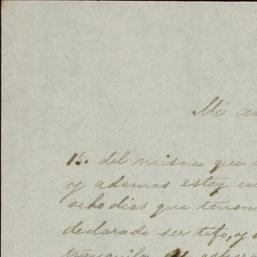 Mi
15. del mismo que
y ademas estoy
ocho dias que
declarado ser tifo, y
tranquilo